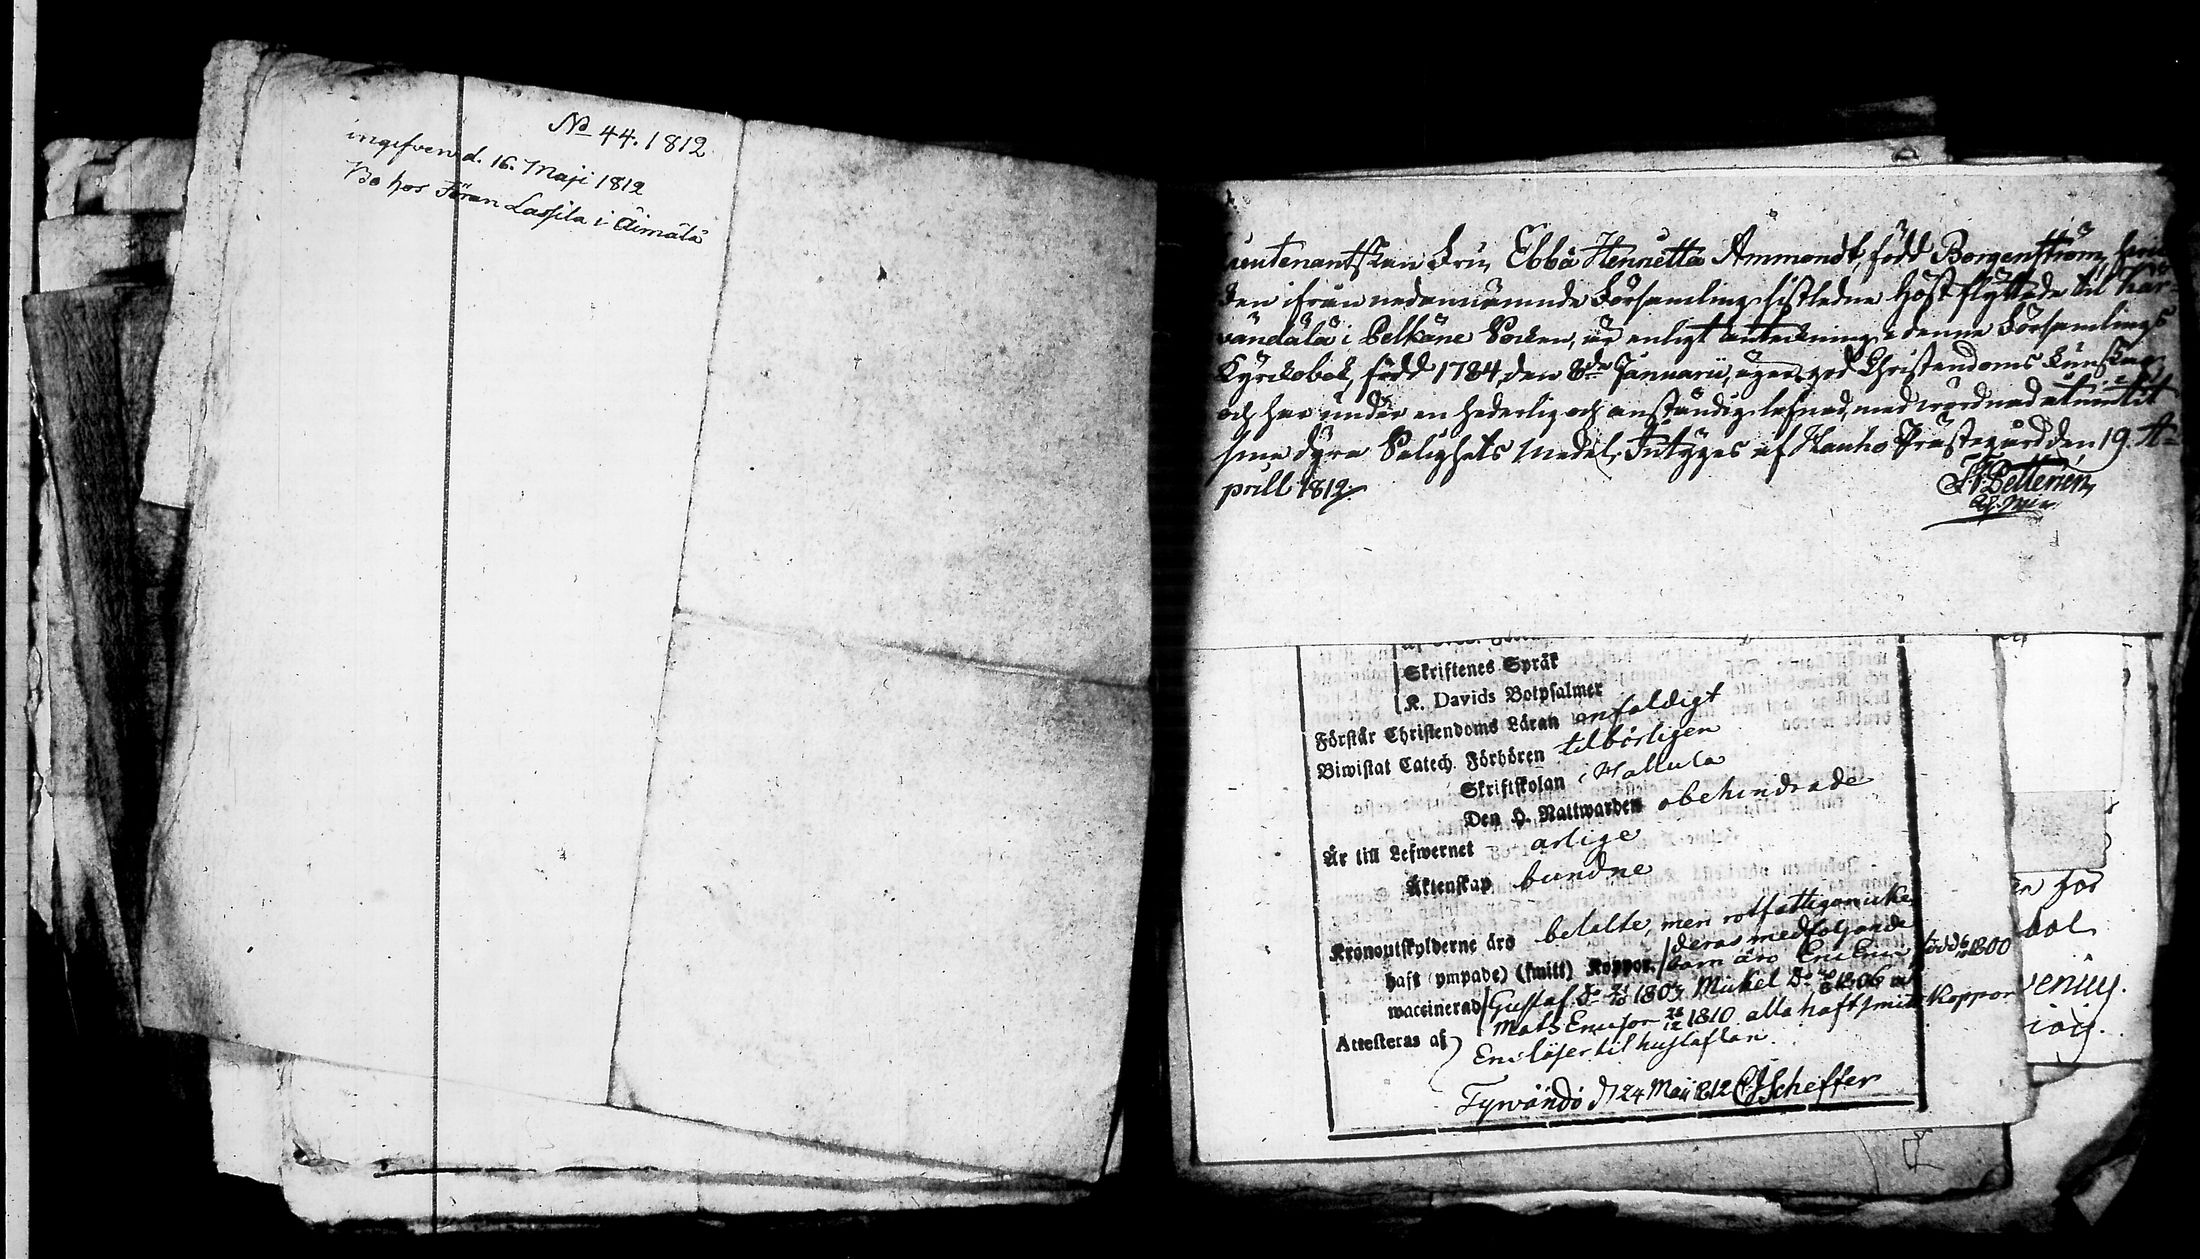 No 44. 1812
ingifven d. 16. Maji 1812
Bo hos Föran Lassila i Äimälä
Lieutenantskan Fru Ebba Henrietta Ammondt, född Borgenström, hvil
ken ifrån nedannämnde Församling sistledne Höst flyttade til Kär-
vändälä i Pelkäne Socken, är enligt anteckning i denne Församlings
Kyrckobok, född 1784, den 8de Januarii, äger god Christendoms Kunskap
och har under en hederlig och anständig lefnad med vördnad
sina dyra Salighets Medel; Intygas af Hauho Prästegård den 19. A-
prill 1812.
Skriftenes Språk
K. Davids Botpsalmer
Förstår Christendoms Läran enfaldigt
Biwistat Catech. Förhören tilbörligen
Skriftskolan i Hallula
Den H. Nattwarden obehindrade
Är till Lefwernet ärlige
Äktenskap bundne
Kronoutskylderne äro betalte, men rotfattigomicke
haft (ympade) (smitt) Koppor. deras medföljande
barn äro Eric Ericss född 1800
waccinerad Gustaf do 1803 Mickel do 1806
Mats Ericsson 26/12 1810 alla haft smitt Koppor
Attesteras af Eric läser til hustaflan.
Tyrwändö d 24 Maji 1812 CJScheffer
en för